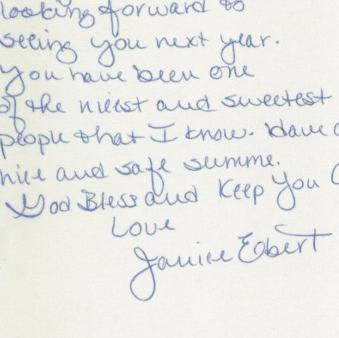 looking forward to
seeing you next year.
You have been one
of the nicest and sweetest
people that I know. Have a
nice and safe summe.
God Bless and Keep You
Love
Janice Ebert